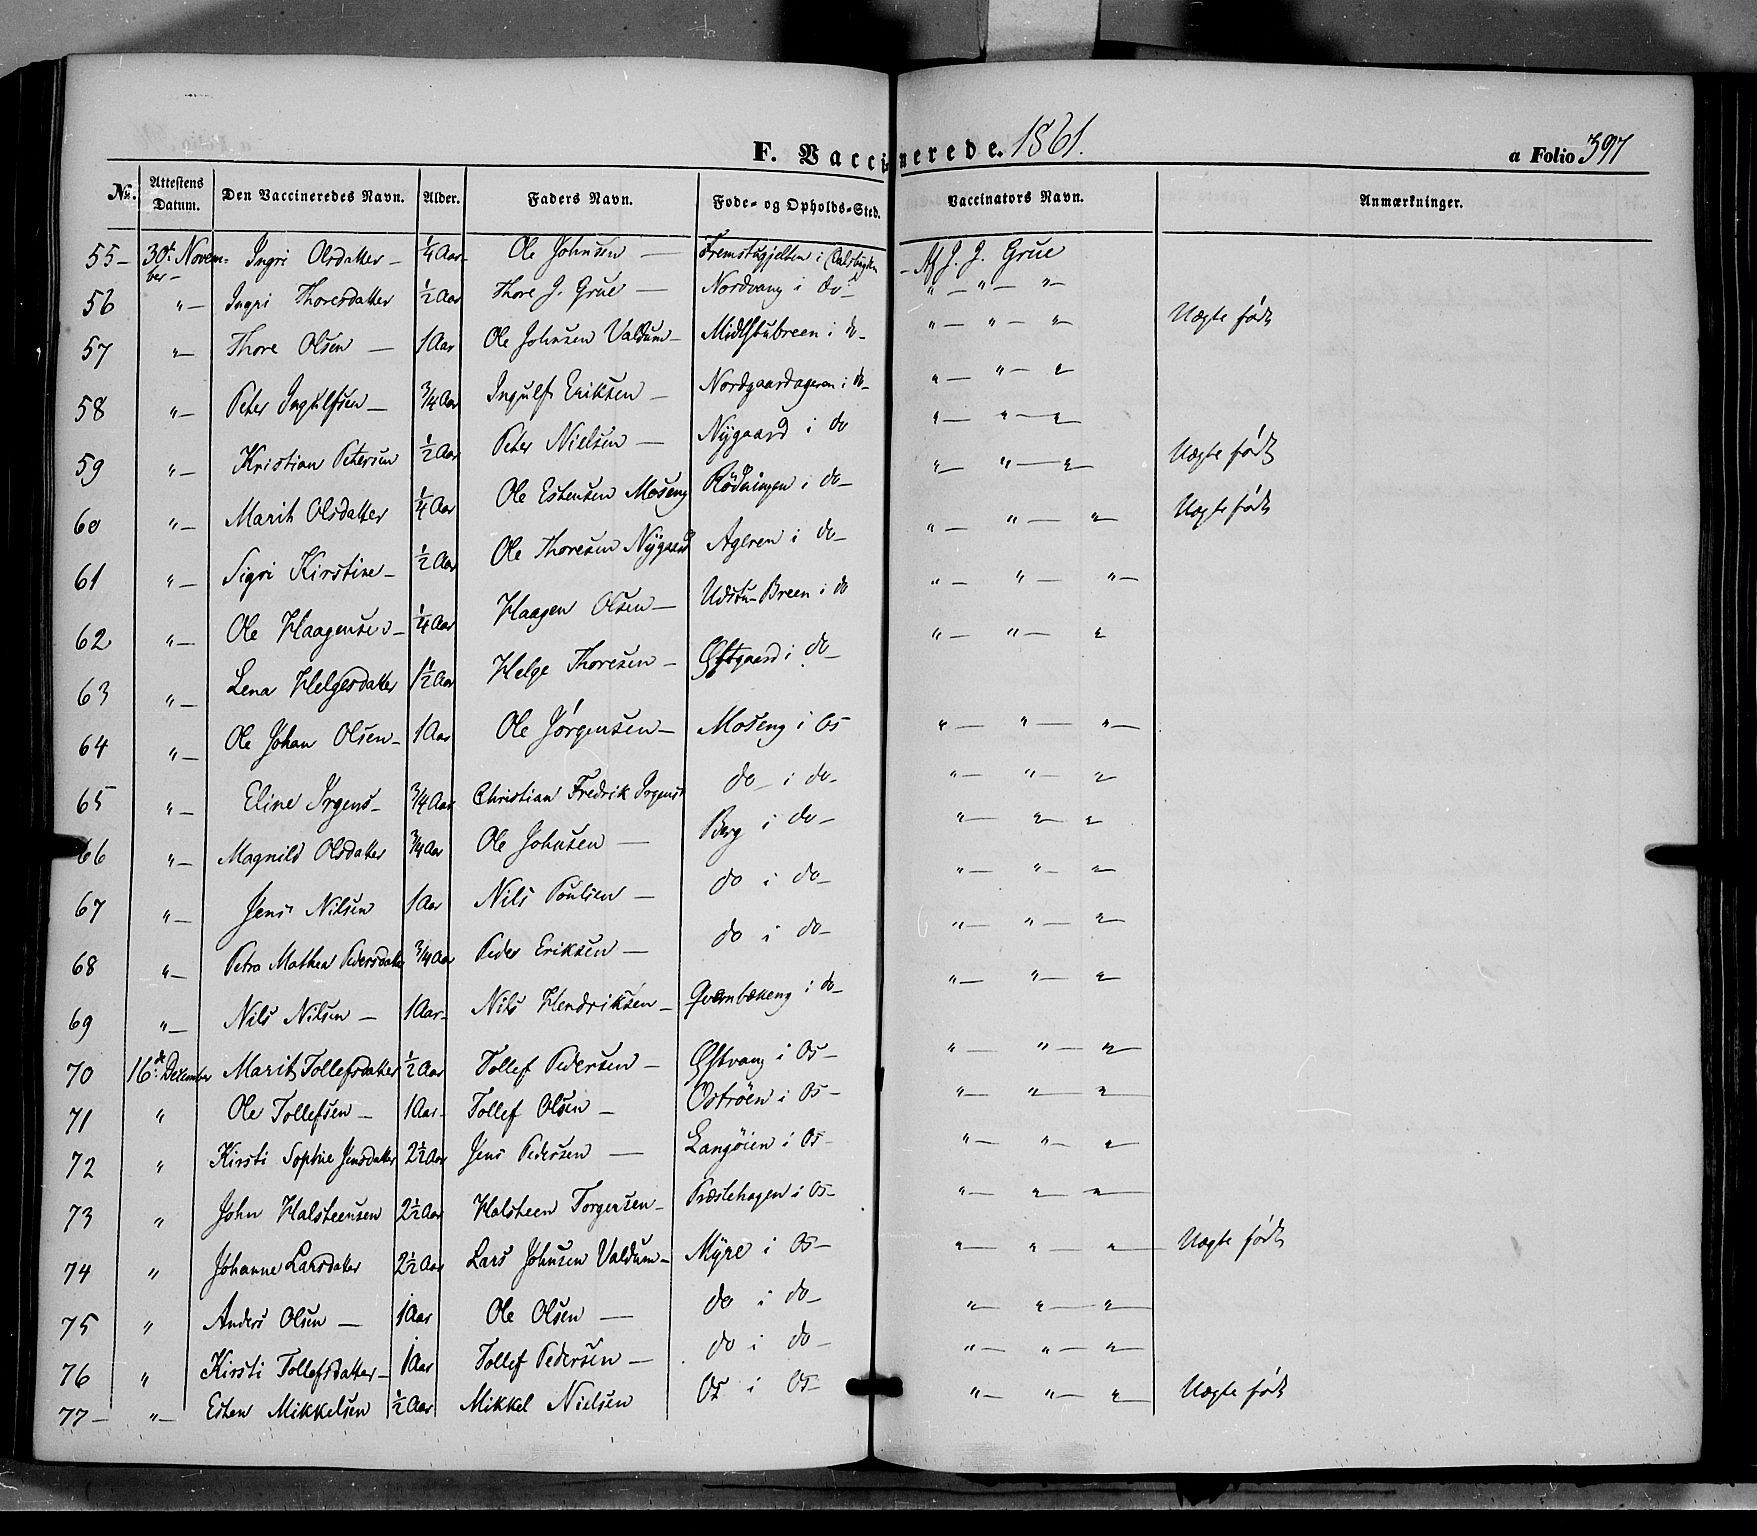 F. Vaccinerede. 1861. a Folio 397
No. Attestens Datum. Den Vaccineredes Navn. Alder. Faders Navn. Føde- og Opholds-Sted. Vaccinators Navn. Anmærkninger.
55 – 30t November – Ingri Olsdatter – 1/4 Aar – Ole Johnsen — i Dalsbygden – Af J. J. Grue
56 " – Ingri Thoresdatter 1/2 Aar Thore J. Grue — Nordvang i do – " – " – " –
57 " – Thore Olsen — 1 Aar Ole Johnsen Valdum – Midtstubreen i do – " – " – " Uægte født
58 " – Peter Ingulfsen – 3/4 Aar Ingulf Eriksen – Nordgaardageren i do – " – " – "
59 " – Kristian Petersen 1/2 Aar Peter Nielsen — Nygaard i do " – " – "
60 " – Marit Olsdatter 1/4 Aar Ole Estensen Moseng Rödningen i do – " – " – " Uægte født
61 " – Sigri Kirstine – 1/2 Aar Ole Thoresen Nygaard Ageren i do – " – " – " Uægte født
62 " – Ole Haagensen – 1/4 Aar Haagen Olsen – Udstu-Breen i do " – " – " –
63 " – Lena Helgesdatter 1 1/2 Aar Helge Thoresen – Østgaard i do – " – " – "
64 " – Ole Johan Olsen – 1 Aar Ole Jørgensen – Moseng i Os " – " – " –
65 " – Eline Irgens – 3/4 Aar Christian Fredrik Irgens do – i do – " – " – "
66 " – Magnild Olsdatter 3/4 Aar Ole Johnsen — Berg i do – " – " "
67 " – Jens Nilsen 1 Aar Nils Poulsen — do i do – " – " – "
68 " – Petra Mathea Pedersdatter 3/4 Aar Peder Eriksen — do i do – " – " – "
69 " – Nils Nilsen – 1 Aar – Nils Hendriksen – Qværnbækeng i do – " – " – "
70 16de Dezember Marit Tollefsdatter 1/2 Aar Tollef Pedersen – Østvang i Os – " – " – "
71 " Ole Tollefsen – 1 Aar – Tollef Olsen – Oströen i Os – " – " – "
72 " Kirsti Sophie Jensdatter 2 1/2 Aar Jens Pedersen — Langöien i Os – " – " – "
73 " John Halsteensen 2 1/2 Aar Halsteen Torgersen – Præstehagen i Os – " – " – "
74 " Johanne Larsdatter 2 1/2 Aar Lars Johnsen Valdum – Myre i Os – " – " – " Uægte født
75 " Anders Olsen – 1 Aar Ole Olsen — do i do – " – " – "
76 " Kirsti Tollefsdatter – 1 Aar Tollef Pedersen – do i do – " – " – "
77 – " – Esten Mikkelsen 1/2 Aar Mikkel Nielsen Os i Os – " – " – " Uægte født